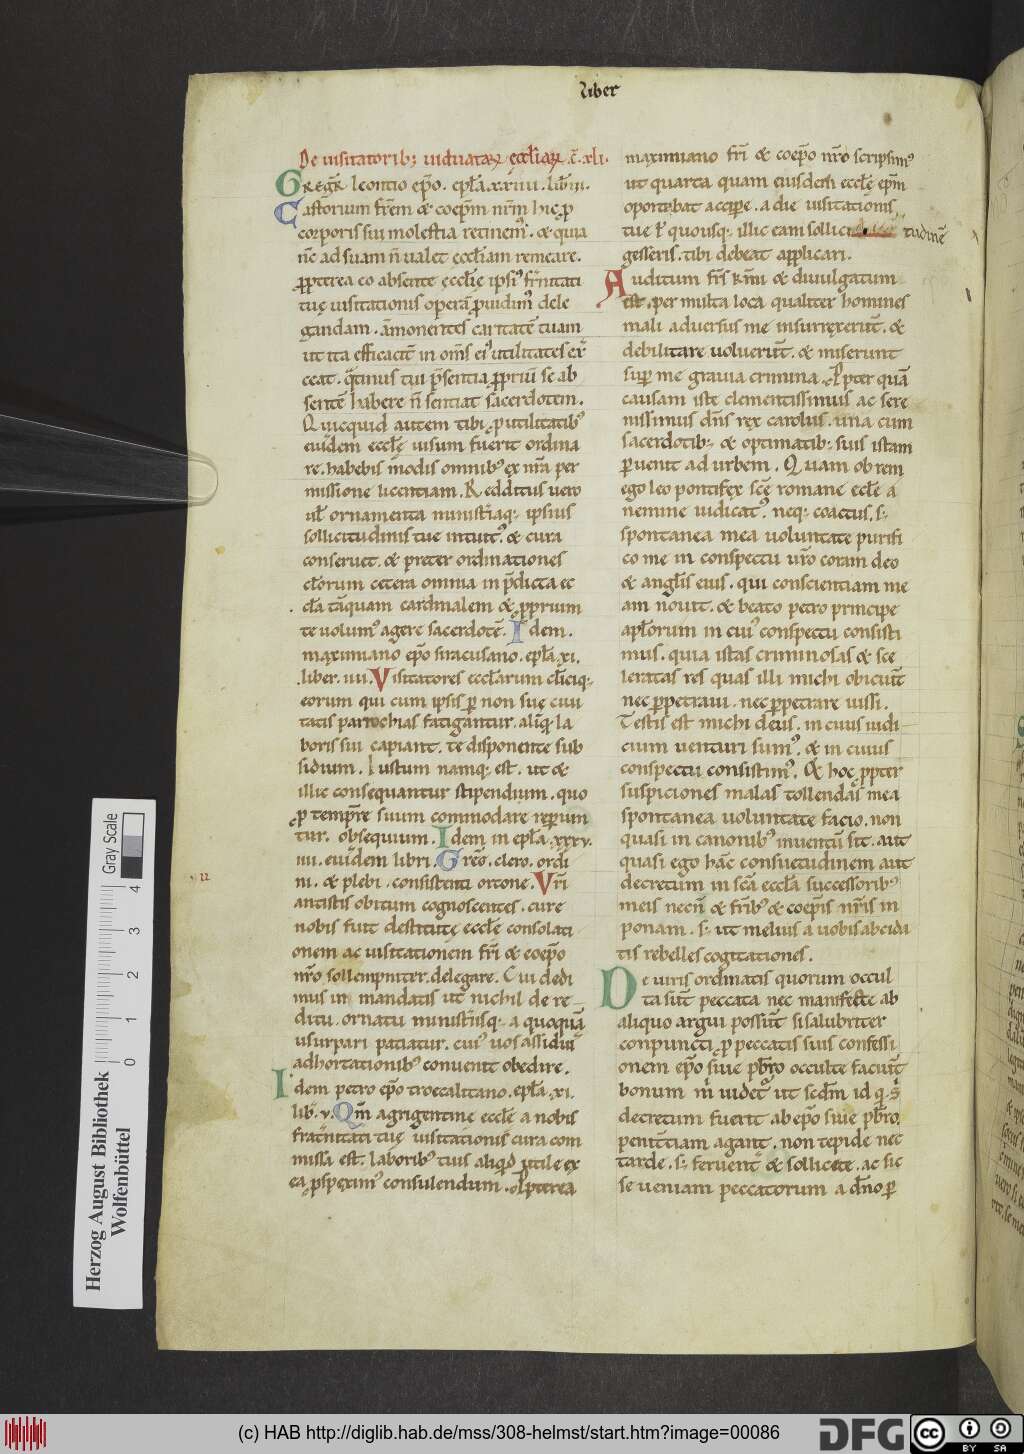 Liber
De uisitatorib; uiduataꝝ eccl̄iaꝝ. c̄. xli.
Gregꝛ̄ leontio ep̄o. ep̄la. xxiiii. lib̄. iii.
Castorium fr̄em & coep̄m nr̄m hic ꝓ
corporis sui molestia retinem᷒. & quia
nc̄ ad suam n̄ ualet eccl̄iam remeare.
ꝓpterea eo absente eccl̄ie ipsi᷒ fr̄nitati
tuę uisitationis operā ꝓuidim᷒ dele
gandam. āmonentes caritatē tuam
ut ita efficacit̄ in om̄s ei᷒ utilitates ex̄
ceat. q̄tinus tui p̄sentia ꝓpriū se ab
sentē habere n̄ sentiat sacerdotem.
Quicquid autem tibi ꝓ utilitatib᷒
eiūdem eccl̄ę uisum fuerit ordina
re. habebis modis omnib᷒ ex nr̄a per
missione licentiam. Redditus uero
ul̄ ornamenta ministīaq; ipsius
sollicitudinis tue intuit᷒. & cura
conseruet. & preter ordinationes
cl̄orum cetera omnia in p̄dicta ec
cl̄a tāquam cardinalem & ꝓprium
te uolum᷒ agere sacerdotē. Idem.
maximiano ep̄o siracusano. ep̄la. xi.
liber. iiii. Visitatores eccl̄arum cl̄iciq;
eorum qui cum ipsis ꝑ non suę ciui
tatis parrochias fatigantur. aliq̄ la
boris sui capiant. te disponente sub
sidium. Iustum namq; est. ut &
illic consequantur stipendium. quo
ꝓ tempr̄e suum commodare reperiun
tur. obsequium. Idem in ep̄la. xxxv
iiii. eiūdem libri. Greḡ. clero. ordi
ni. & plebi. consistenti ortone. Vr̄i
antistis obitum cognoscentes. cure
nobis fuit destitutę eccl̄e consolati
onem ac uisitationem fr̄i & coep̄o
nr̄o sollempniter. delegare. Cui dedi
mus in mandatis ut nichil de re
ditu. ornatu ministīisq; a quoquā
usurpari patiatur. cui᷒ uos assidui᷒
adhortationib᷒ conuenit obedire.
Idem petro ep̄o trocalitano. ep̄la. xi.
lib̄. v. Qm̄ agrigentinę eccl̄e a nobis
frat̄nitati tuę uisitationis cura com
missa est. laborib᷒ tuis aliq̇d utile ex
ea ꝓspexim᷒ consulendum. Ꝓpterea
maximiano fr̄i & coep̄o nr̄o scripsim᷒
ut quarta quam eiusdem eccl̄ę ep̄m
oportebat accipe. a die uisitationis
tue t̄ quousq; illic eam sollici tudinē
gesseris. tibi debeat applicari.
Auditum fr̄s km̄i & diuulgatum
est. per multa loca qualiter homines
mali aduersus me insurrexerūt. &
debilitare uoluerūt. & miserunt
suꝑ me grauia crimina. Ꝓpter quā
causam iste clementissimus ac sere
nissimus dn̄s rex carolus. una cum
sacerdotib; & optimatib; suis istam
ꝑuenit ad urbem. Quam ob rem
ego leo pontifex scē romane eccl̄e a
nemine iudicat᷒. neq; coactus. s;
spontanea mea uoluntate purifi
co me in conspectu uro coram deo
& angl̄is eius. qui conscientiam me
am nouit. & beato petro principe
apl̄orum in cui᷒ conspectu consisti
mus. quia istas criminosas & sce
leratas res quas illi michi obiciūt
nec ꝑpetraui. nec ꝑpetrare iussi.
Testis est michi deus. in cuius iudi
cium uenturi sum᷒. & in cuius
conspectu consistim᷒. Et hoc ꝓpter
suspiciones malas tollendas mea
spontanea uoluntate facio. non
quasi in canonib᷒ inuentū sit. aut
quasi ego hāc consuetudinem aut
decretum in scā eccl̄a successorib᷒
meis necn̄ & fr̄ib᷒ & coep̄is nr̄is in
ponam. s; ut melius a uobis abcida
tis rebelles cogitationes.
De uiris ordinatis quorum occul
ta sūt peccata nec manifeste ab
aliquo argui possūt si salubriter
conpuncti ꝓ peccatis suis confessi
onem ep̄o siue pb̄ro occulte faciūt
bonum m̄ uidet᷒ ut sedm̄ id q̇ s̄
decretum fuerit ab ep̄o siue pb̄ro.
penitn̄tiam agant. non tepide nec
tarde. s; feruent̄ & sollicite. ac sic
se ueniam peccatorum a dn̄o ꝑ
Gray Scale
0 1 2 3 4
Herzog August Bibliothek
Wolfenbüttel
(c) HAB http://diglib.hab.de/mss/308-helmst/start.htm?image=00086
DFG
cc BY SA